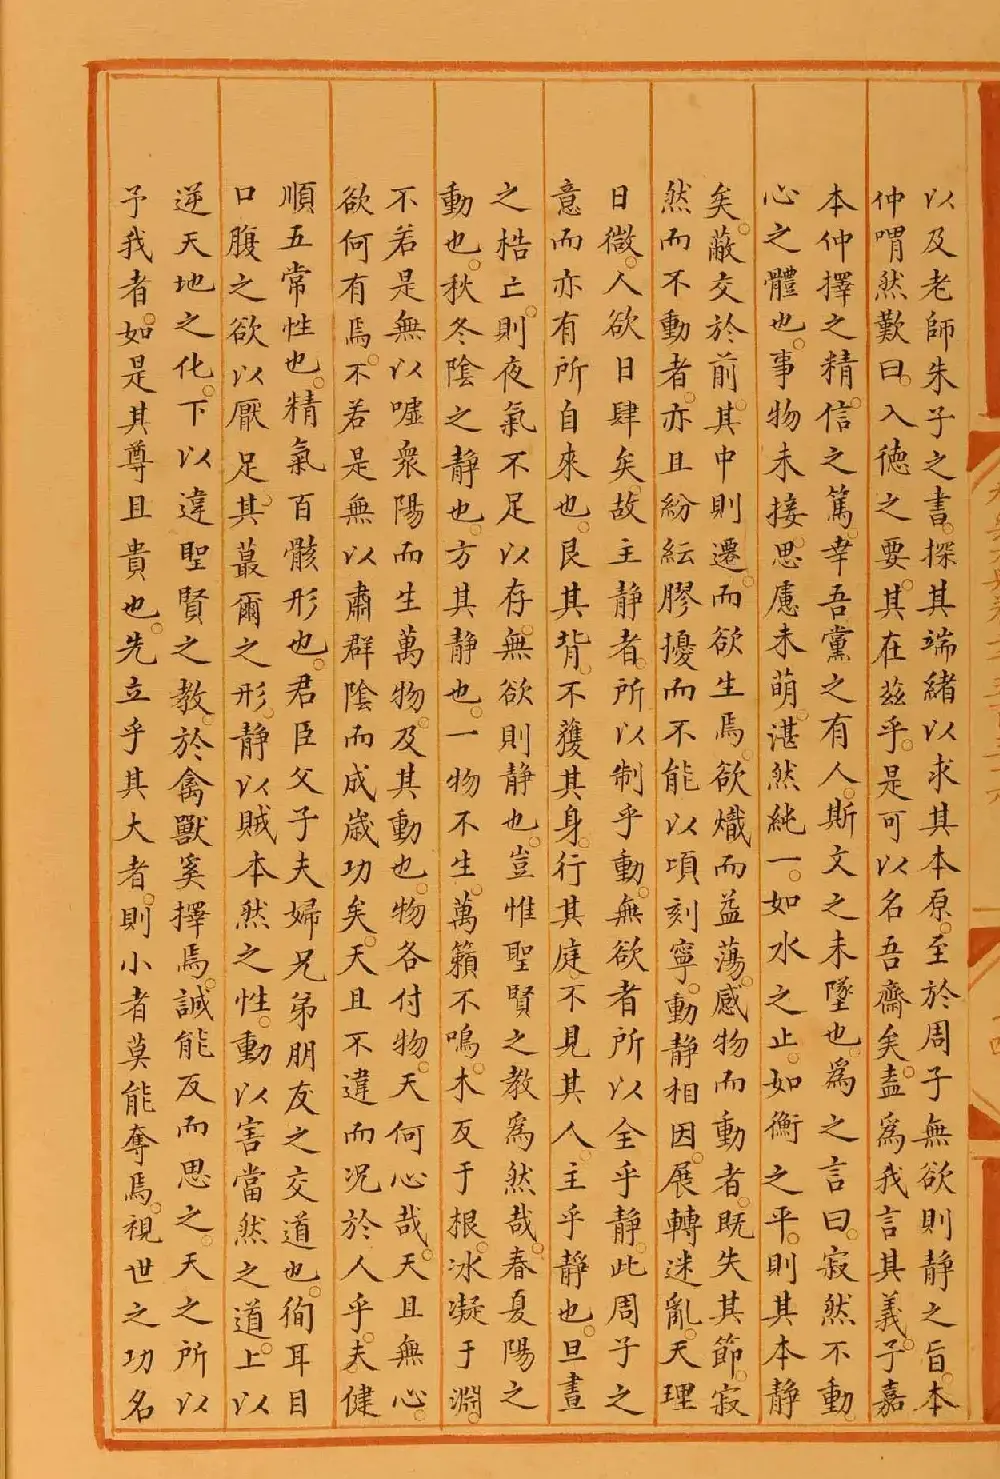 以及老師朱子之書。探其端緒以求其本原。至於周子無欲則静之旨。本
仲喟然歎曰。入德之要。其在兹乎。是可以名吾齋矣。盍爲我言其義。予嘉
本仲擇之精。信之篤。幸吾黨之有人。斯文之未墜也。爲之言曰。寂然不動。
心之體也。事物未接。思慮未萌。湛然純一。如水之止。如衡之平。則其本静
矣。蔽交於前。其中則遷。而欲生焉。欲熾而益蕩。感物而動者。既失其節。寂
然而不動者。亦且紛紜膠擾而不能以頃刻寧。動静相因。展轉迷亂。天理
日微。人欲日肆矣。故主静者。所以制乎動。無欲者所以全乎静。此周子之
意而亦有所自來也。艮其背。不獲其身。行其庭不見其人。主乎静也。旦晝
之梏亡。則夜氣不足以存。無欲則静也。豈惟聖賢之教爲然哉。春夏陽之
動也。秋冬陰之静也。方其静也。一物不生。萬籟不鳴。木反于根。冰凝于淵。
不若是無以噓衆陽而生萬物。及其動也。物各付物。天何心哉。天且無心。
欲何有焉。不若是無以肅群陰而成歲功矣。天且不違而况於人乎。夫健
順五常性也。精氣百骸形也。君臣父子夫婦兄弟朋友之交道也。徇耳目
口腹之欲以厭足其蕞爾之形。静以賊本然之性。動以害當然之道。上以
逆天地之化。下以違聖賢之教。於禽獸奚擇焉。誠能反而思之。天之所以
予我者。如是其尊且貴也。先立乎其大者。則小者莫能奪焉。視世之功名